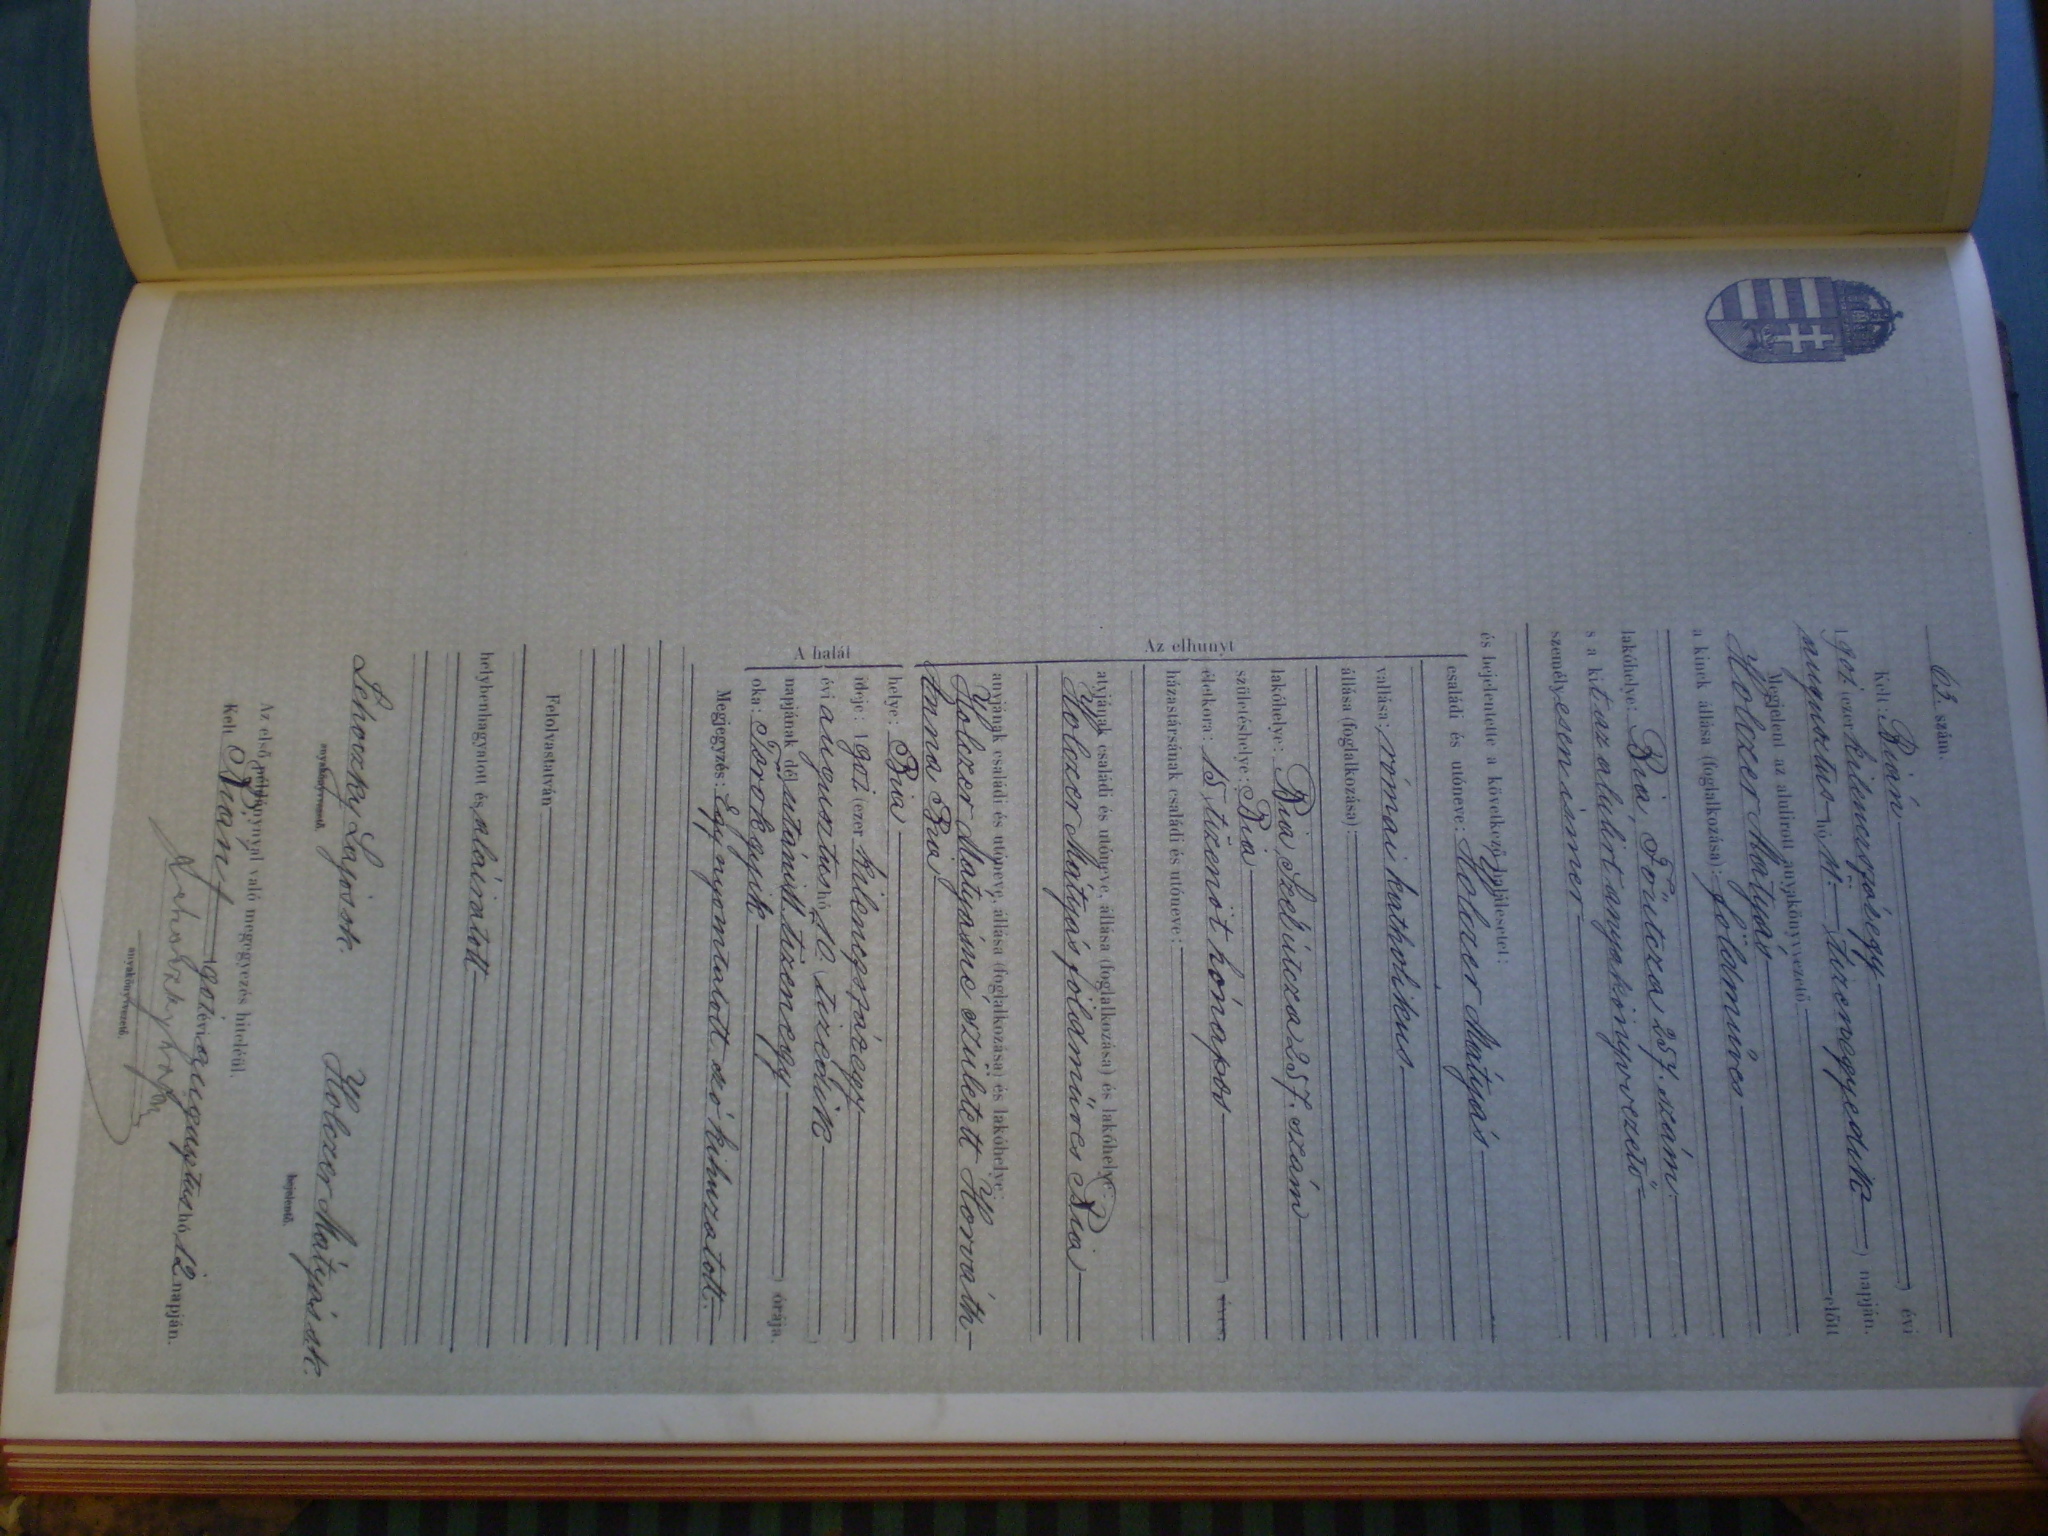 63. szám.
Kelt: Bián ) évi
1901 (ezer kilencszázegy ) napján.
augusztus hó 11. tizenegyedik
Megjelent az alulírott anyakönyvvezető előtt
Holczer Mátyás
a kinek állása (foglalkozása): földmüves
lakóhelye: Bia Föutcza 257. szám.
s a kit az alulírt anyakönyvvezető
személyesen ismer
és bejelentette a következő halálesetet:
Az elhunyt
családi és utóneve: Holczer Mátyás
vallása: római katholikus
állása (foglalkozása):
lakóhelye: Bia, 257. szám
születéshelye: Bia
életkora: 15, tizenöt hónapos ) éves.
házastársának családi és utóneve:
atyjának családi és utóneve, állása (foglalkozása) és lakóhelye:
Holczer Mátyás földmüves Bia
anyjának családi és utóneve, állása (foglalkozása) és lakóhelye:
Holczer Mátyásné született Horváth
Anna Bia
A halál
helye: Bia
ideje: 1901 (ezer kilencszázegy )
évi augusztus hó 10. tizedik )
napjának dél utáni tizenegy ) órája.
oka: Torokgyik
Megjegyzés: Egy nyomtatott szó kihuzatott.
Felolvastatván
helybenhagyatott és aláiratott
Lehoczky Lajos sk. Holczer Mátyás s.k.
anyakönyvvezető. bejelentő.
Az első példánynyal való megegyezés hiteléül.
Kelt Bián, 1901 évi augusztus hó 12 napján.
anyakönyvvezető.